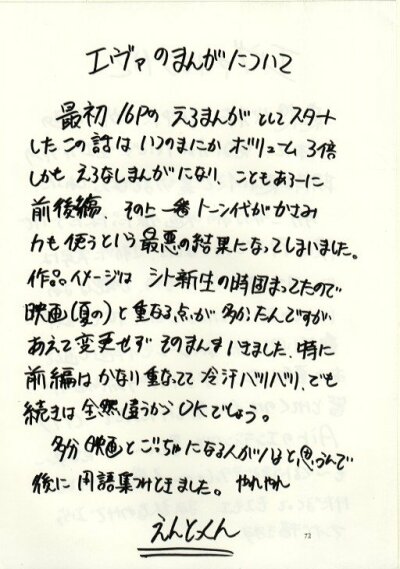 エヴァのまんがについて
最初16Pのえろまんがとしてスタート
したこの話はいつのまにかボリューム3倍
しかもえろなしまんがになり、こともあろーに
前後編、その上一番トーン代がかさみ
力も使うという最悪の結果になってしまいました。
作品イメージはシト新生の時固まってたので
映画(夏の)と重なる点が多かたんですが
あえて変更せずそのまんまいきました、特に
前編はかなり重なってて冷汗バリバリ、でも
続きは全然違うからOKでしょう。
多分映画とごっちゃになる人がいると思うんで
後に用語集みとまました。やれやれ
えんどくん
72